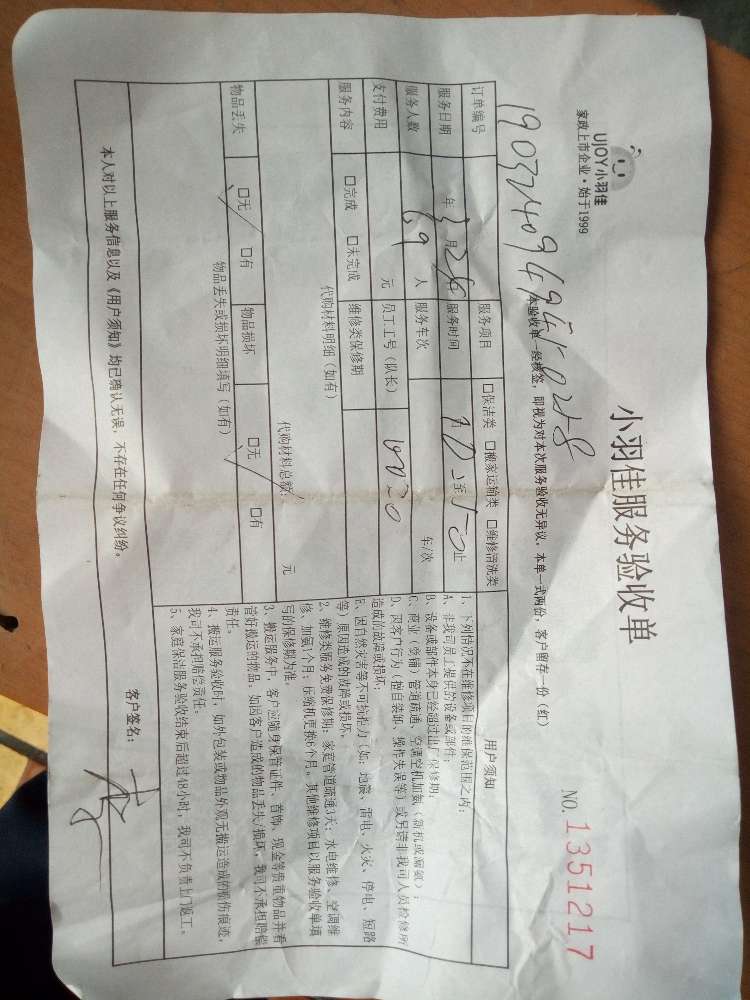 UJOY小羽佳
家政上市企业·始于1999
小羽佳服务验收单
NO.1351217
本验收单一经核签，即视为对本次服务验收无异议。本单一式两份，客户留存一份（红）
订单编号 服务项目 □保洁类 □搬家运输类 □维修清洗类
服务日期 年 3 月 26 服务时间 至 止
服务人数 人 服务车次 车/次
支付费用 元 员工工号（队长）
服务内容 □完成 □未完成 维修类保修期
代购材料明细（如有）
代购材料总额： 元
物品丢失 □无 □有 物品损坏 □无 □有
物品丢失或损坏明细填写（如有）
用户须知
1、下列情况不在维修项目的维保范围之内：
A、非我司员工提供的设备或部件；
B、设备或部件本身已经超过出厂保修期；
C、商业（店铺）管道疏通、空调空机加氨（新机或漏氨）；
D、因客户行为（擅自装拆、操作失误等）或另请非我司人员检修所
造成的故障或损坏；
E、因自然灾害等不可抗拒力（如：地震、雷电、火灾、停电、短路
等）原因造成的故障或损坏。
2、维修类服务免费保修期：家庭管道疏通3天；水电维修、空调维
修、加氨1个月；压缩机更换6个月。其他维修项目以服务验收单填
写的保修期为准。
3、搬运服务中，客户应随身保管证件、首饰、现金等贵重物品并看
管好搬运的物品，如因客户造成的物品丢失/损坏，我司不承担赔偿
责任。
4、搬运服务验收时，如外包装或物品外观无搬运造成的脏伤痕迹，
我司不承担赔偿责任。
5、家庭保洁服务验收结束后超过48小时，我司不负责上门返工。
本人对以上服务信息以及《用户须知》均已确认无误，不存在任何争议纠纷。
客户签名：